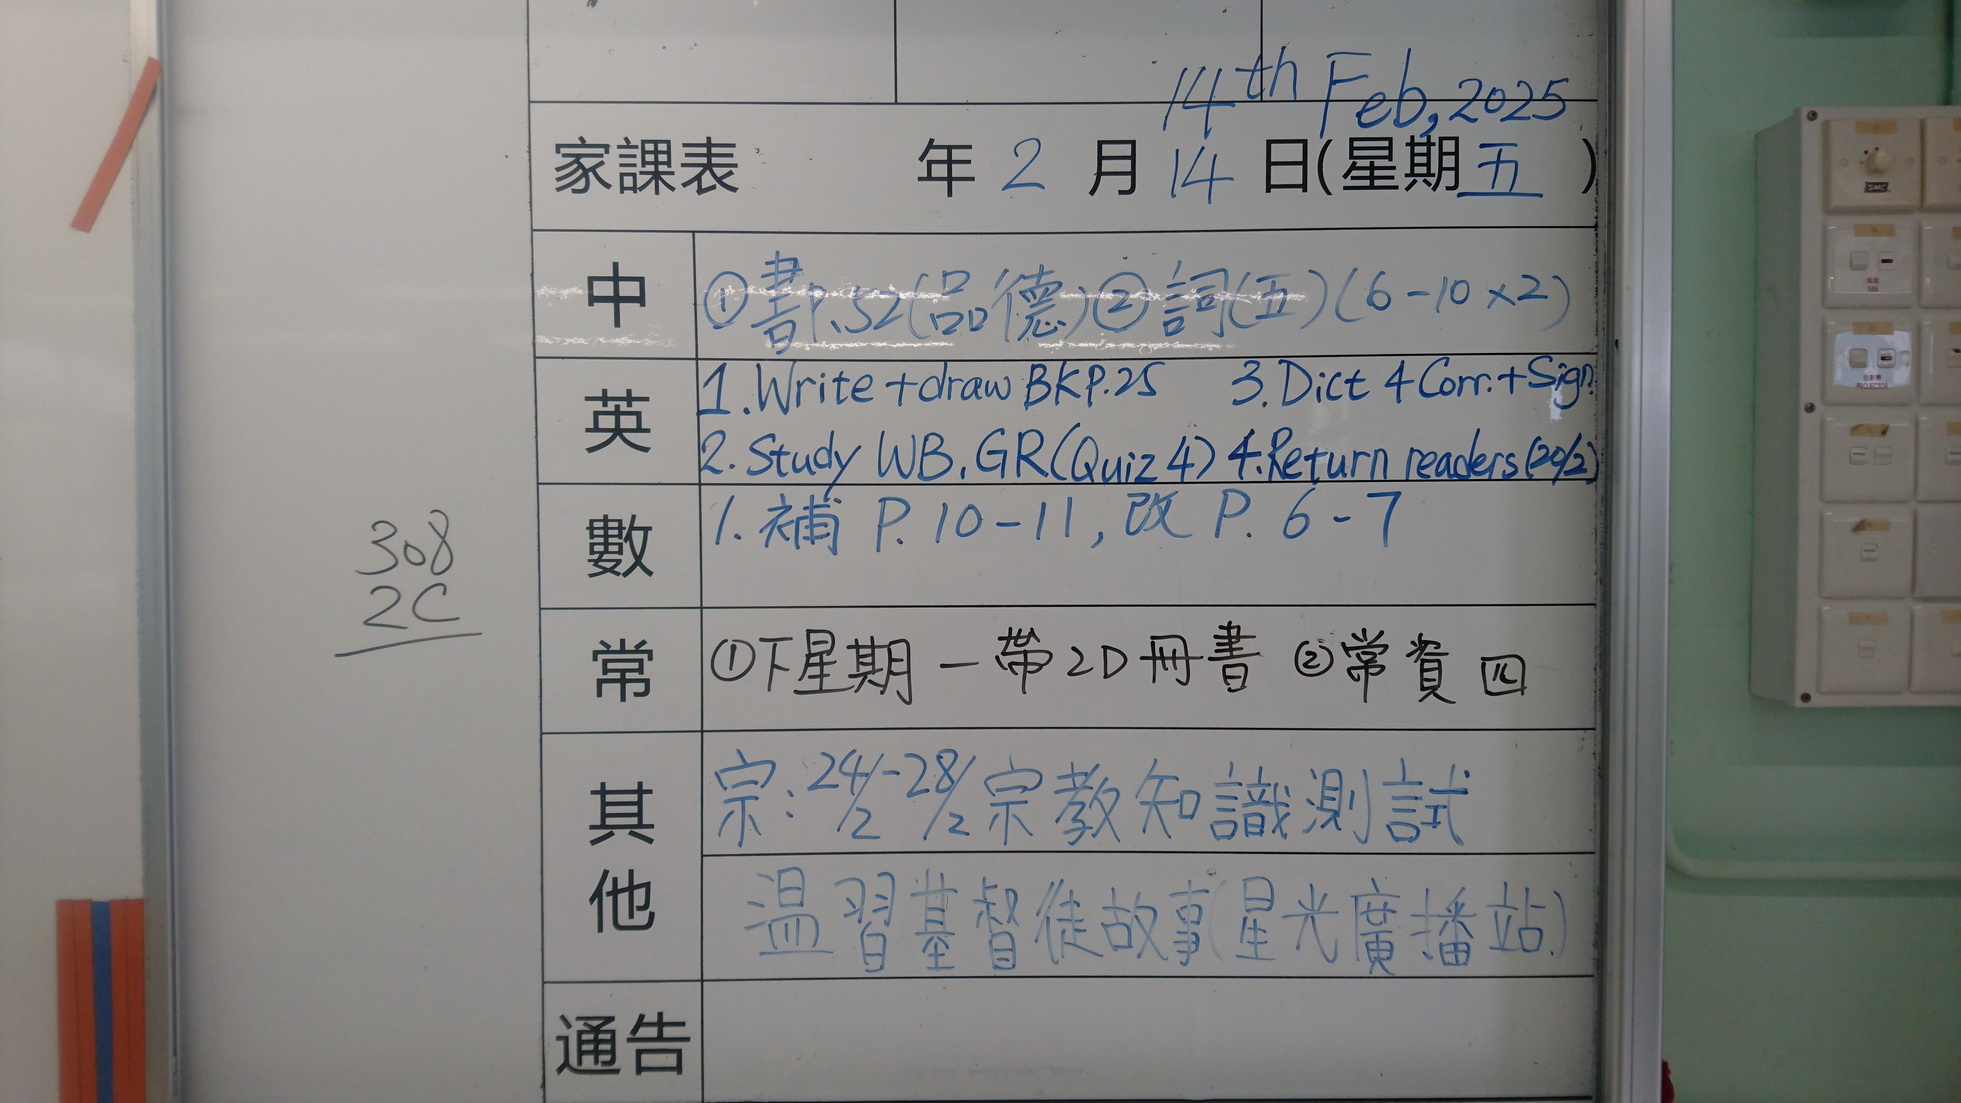 14th Feb, 2025
家課表 年 2 月 14 日(星期 五 )
中 ①書P.52(品德) ②詞(五)(6-10×2)
英 1. Write + draw BK P.25 3. Dict 4 Corr. + Sign.
2. Study WB, GR (Quiz 4) 4. Return readers (20/2)
數 1. 補 P. 10-11, 改 P. 6-7
308
2C
常 ①下星期一帶2D冊書 ②常資四
其他 宗: 24/2-28/2宗教知識測試
温習基督徒故事(星光廣播站)
通告
SMC